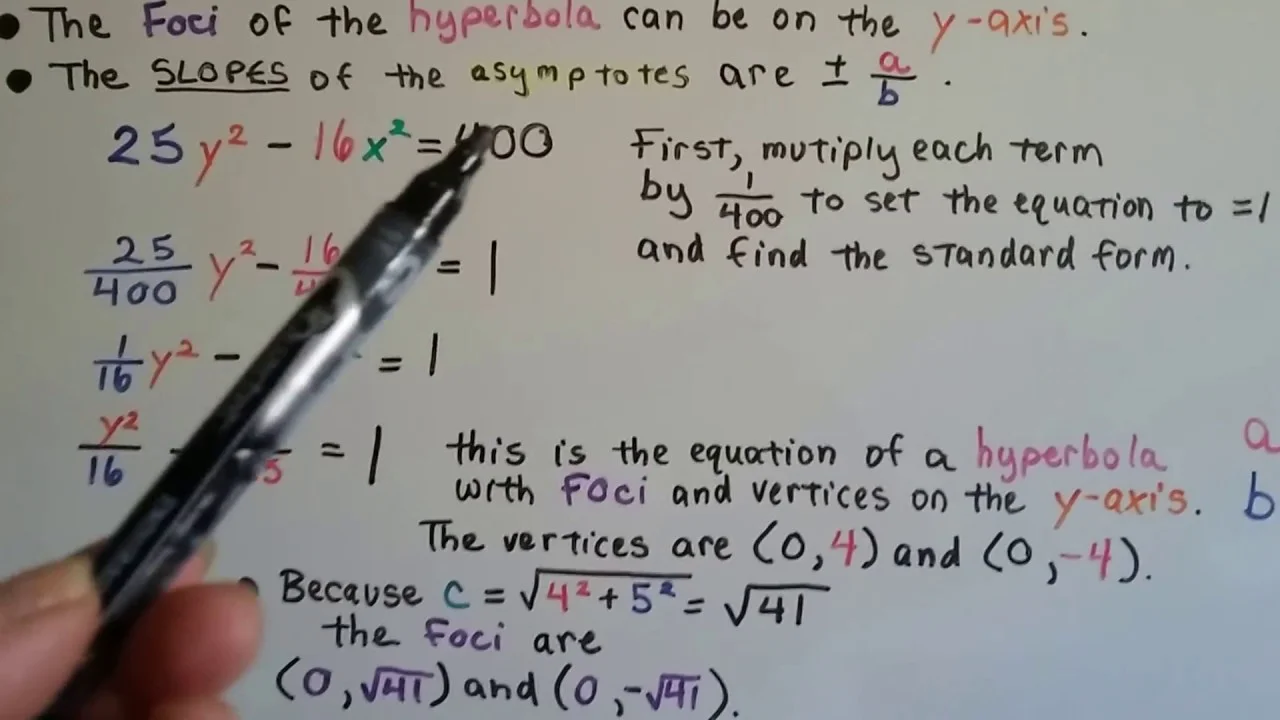 • The Foci of the hyperbola can be on the y-axis.
• The SLOPES of the asymptotes are ± a/b.
25y² - 16x² = 400
First, mutiply each term
by 1/400 to set the equation to =1
and find the standard form.
25/400 y² - 16 = 1
1/16 y² - = 1
y²/16 - = 1
this is the equation of a hyperbola
with Foci and vertices on the y-axis.
a
b
The vertices are (0, 4) and (0, -4).
Because c = √4² + 5² = √41
the Foci are
(0, √41) and (0, -√41).